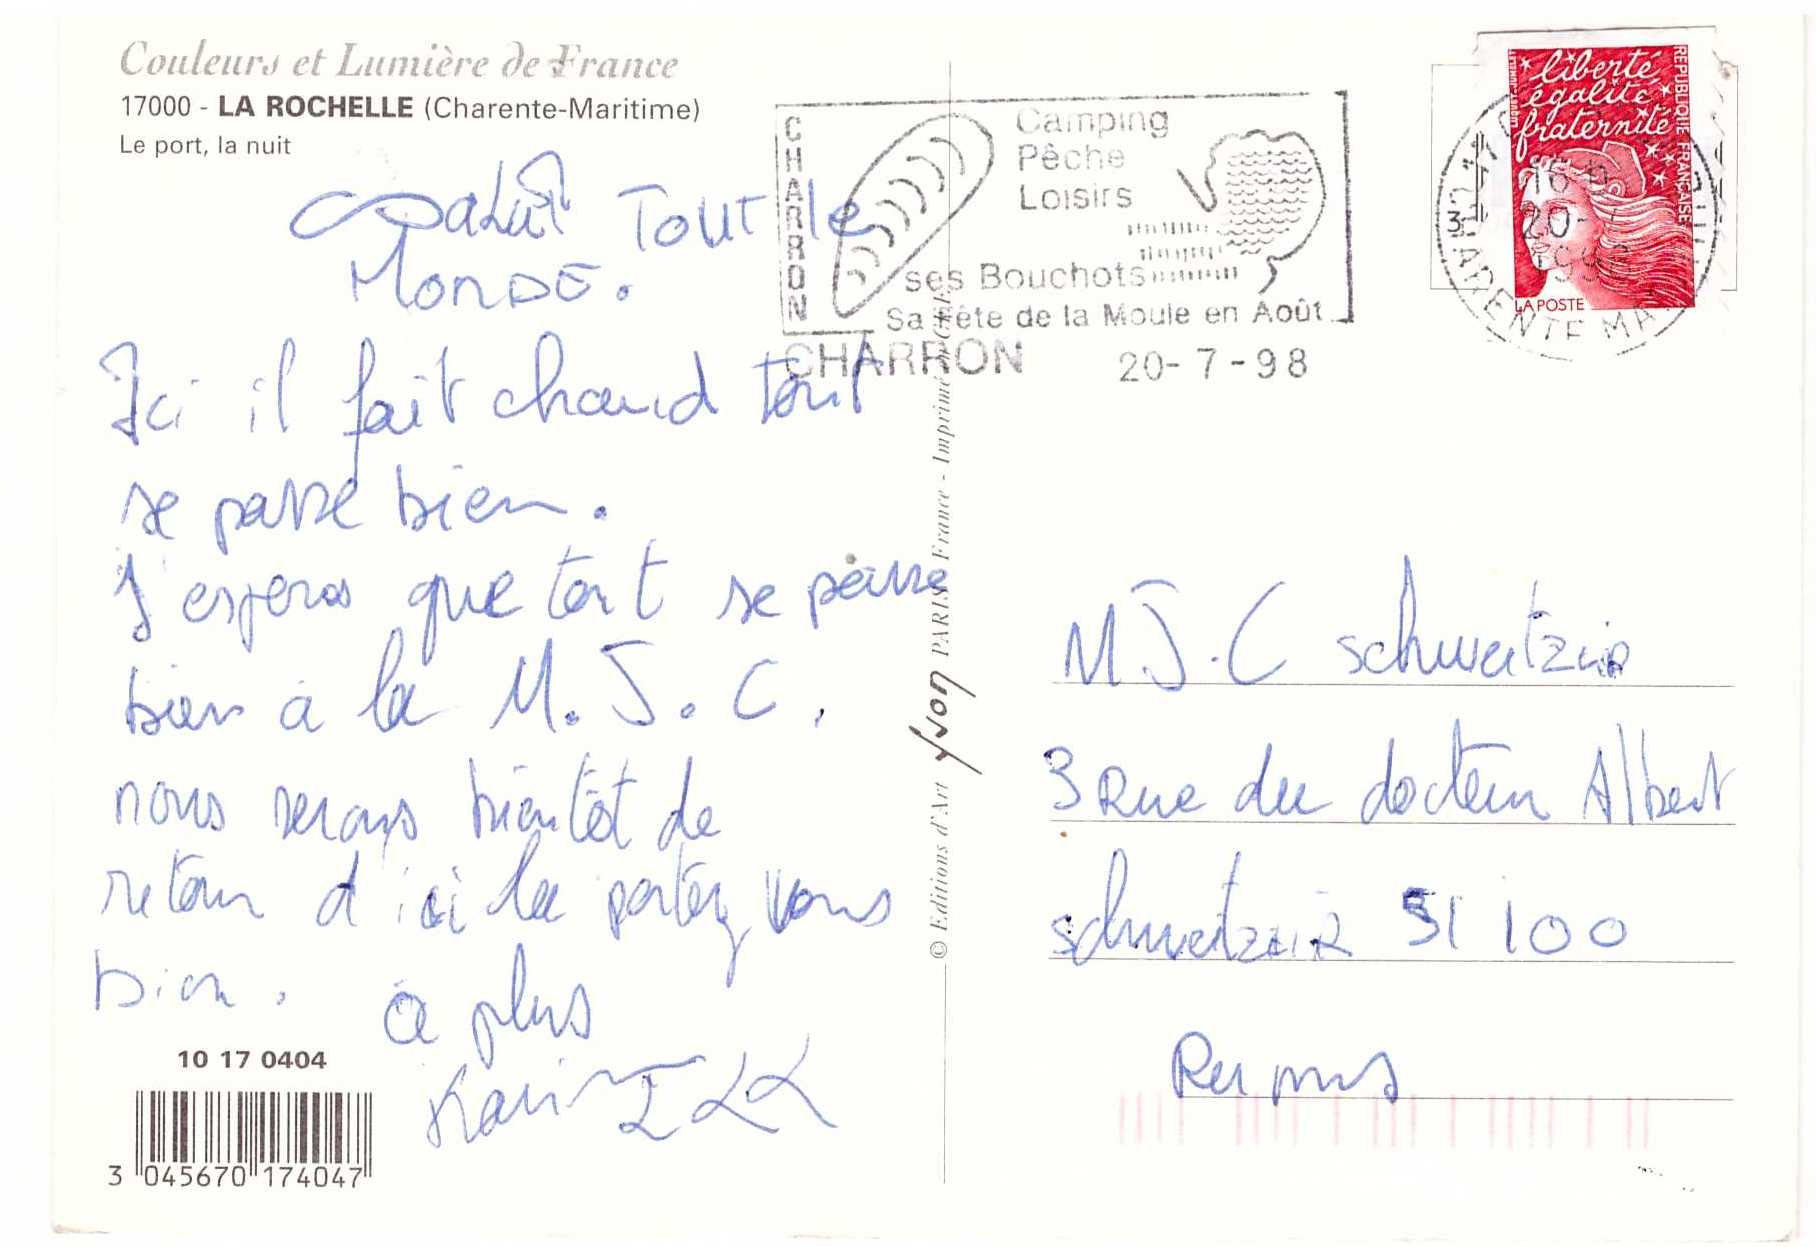 Couleurs et Lumière de France
17000 - LA ROCHELLE (Charente-Maritime)
Le port, la nuit
Salut TOUT le
MONDE.
Ici il fait chaud tout
se passe bien.
J'esperes que tout se passe
bien à la M.J.C.
nous serons bientôt de
retour d'ici la portez vous
bien. a plus
10 17 0404
3 045670 174047
© Editions d'Art Yvon PARIS France - Imprimé en CEE
CHARRON
Camping
Pêche
Loisirs
ses Bouchots
Sa Fête de la Moule en Août
CHARRON 20-7-98
liberté
égalité
fraternité
REPUBLIQUE FRANÇAISE
LA POSTE
20-7
1998
MJ.C schweitzer
3 Rue du docteur Albert
schweitzeiR 51 100